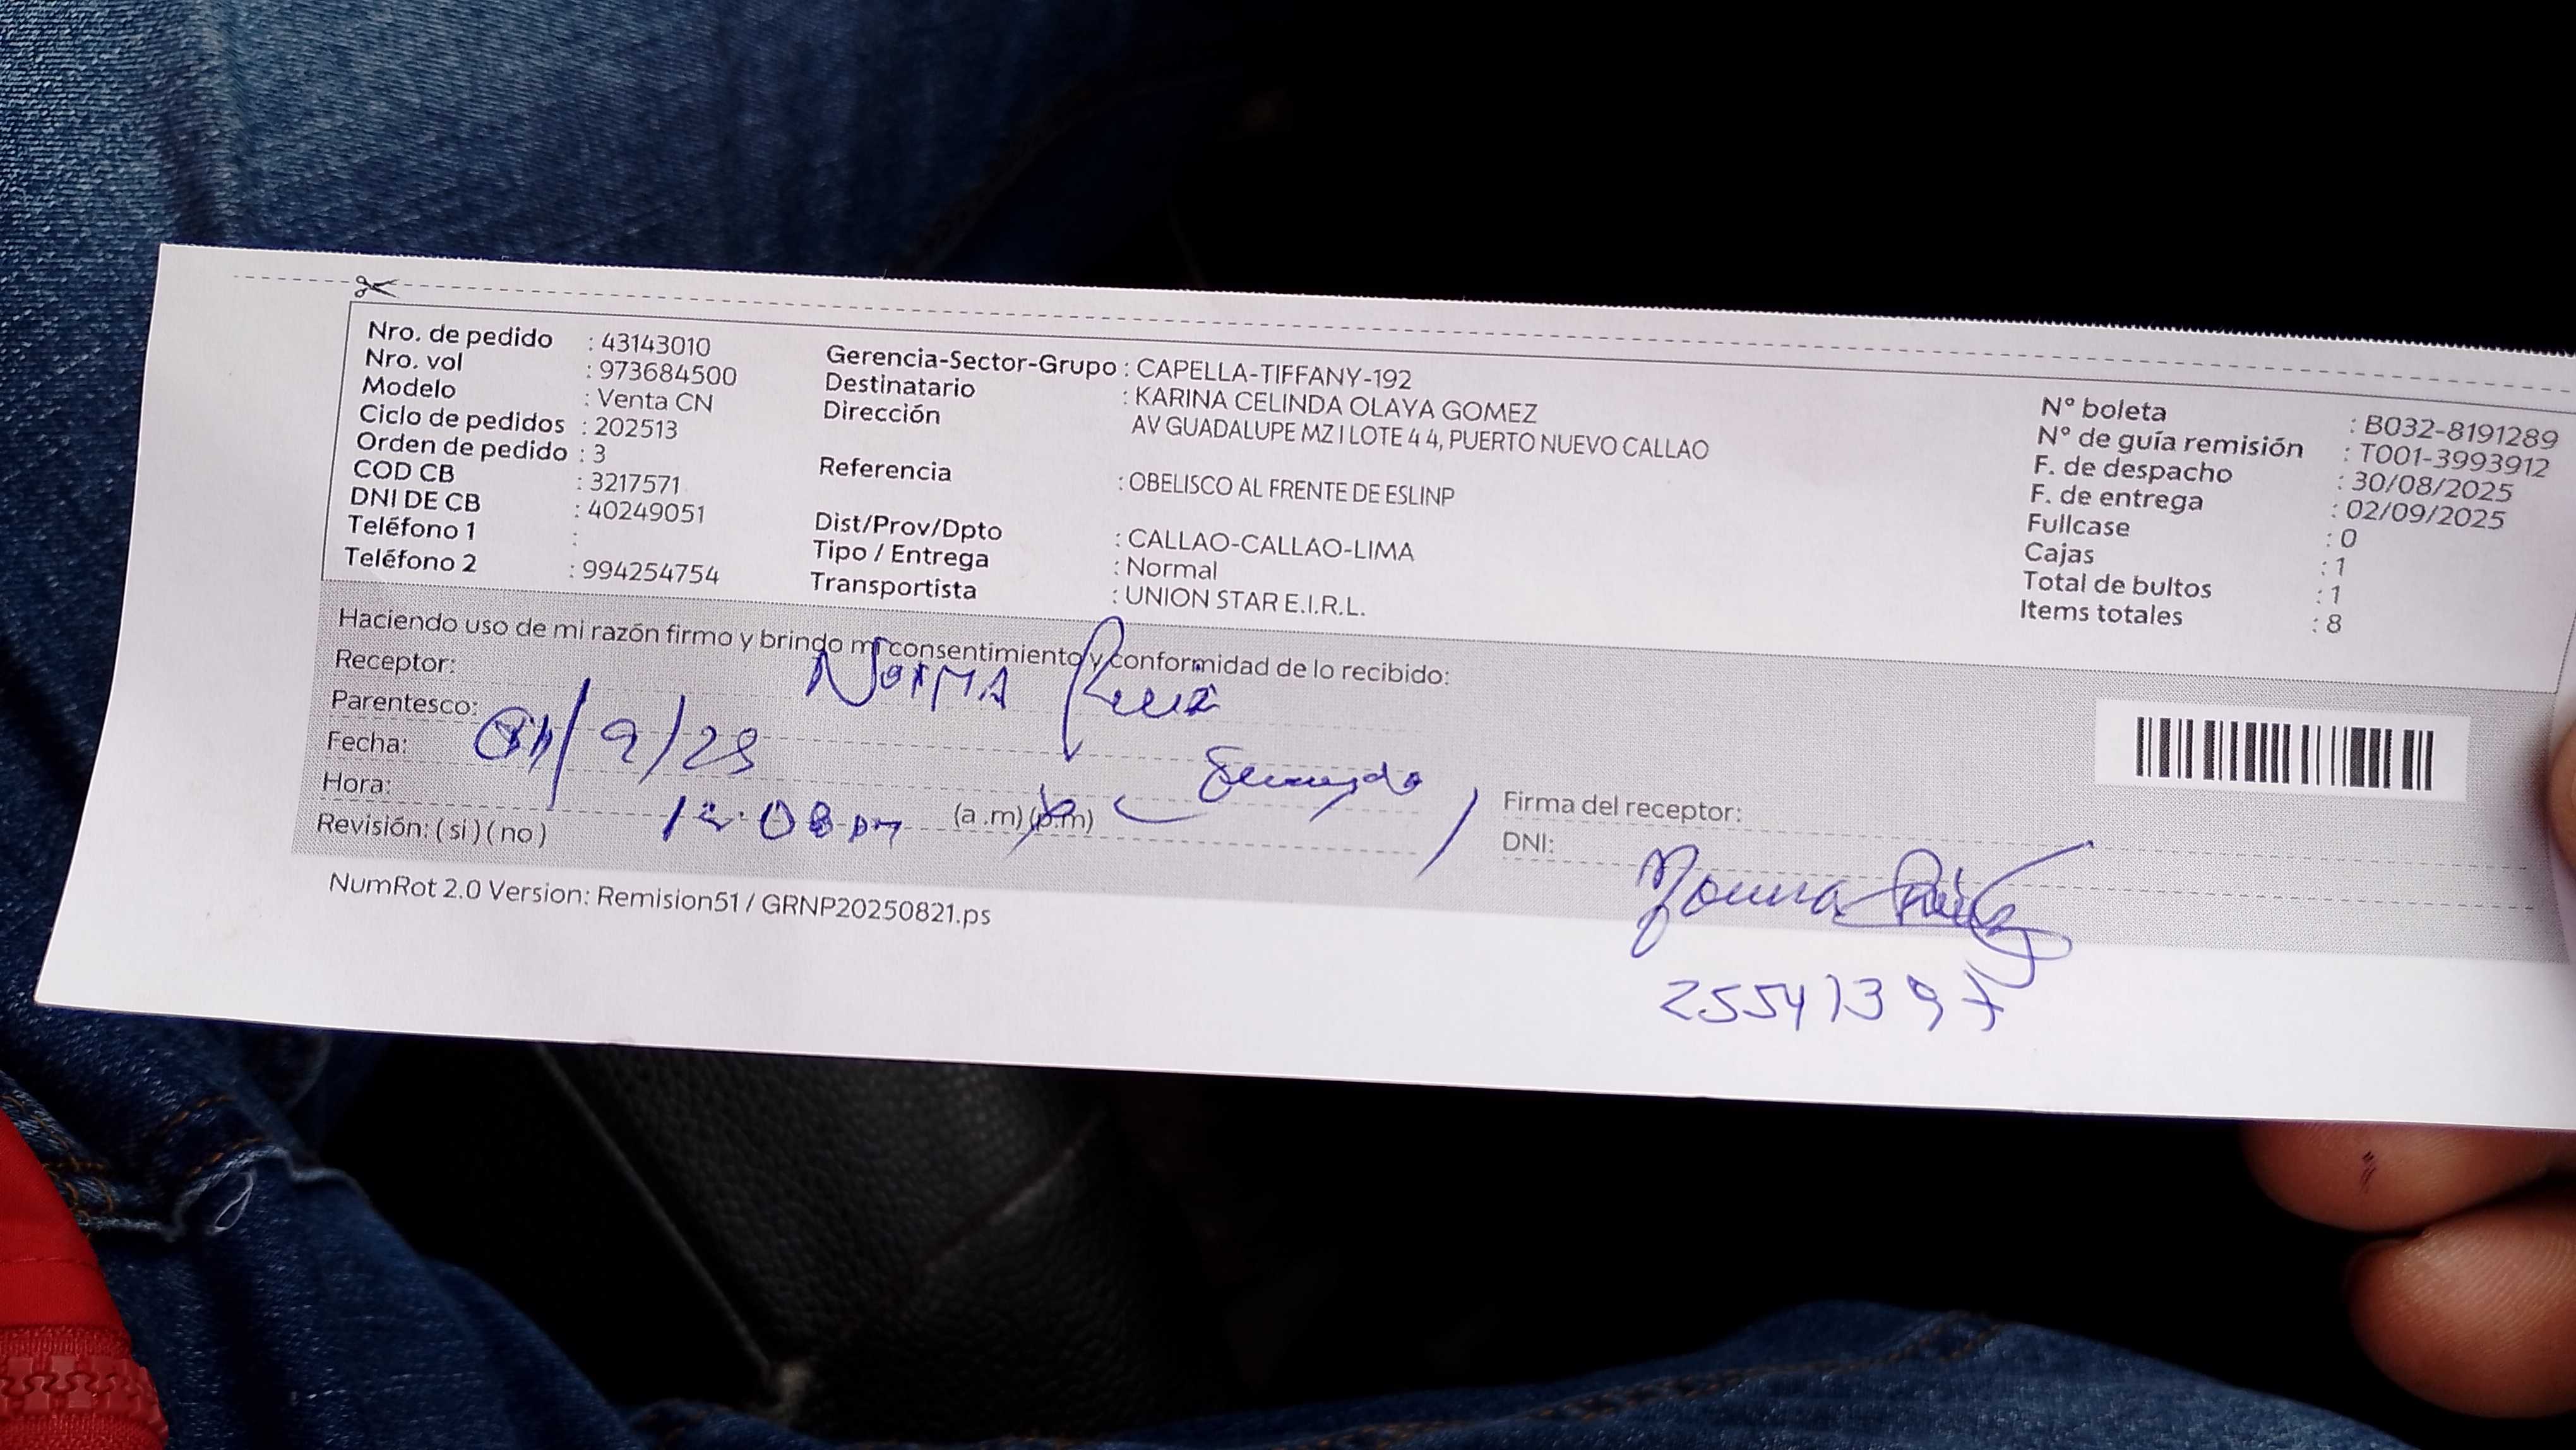 Nro. de pedido : 43143010
Nro. vol : 973684500
Modelo : Venta CN
Ciclo de pedidos : 202513
Orden de pedido : 3
COD CB : 3217571
DNI DE CB : 40249051
Teléfono 1 :
Teléfono 2 : 994254754
Gerencia-Sector-Grupo : CAPELLA-TIFFANY-192
Destinatario : KARINA CELINDA OLAYA GOMEZ
Dirección AV GUADALUPE MZ I LOTE 4 4, PUERTO NUEVO CALLAO
Referencia : OBELISCO AL FRENTE DE ESLINP
Dist/Prov/Dpto : CALLAO-CALLAO-LIMA
Tipo / Entrega : Normal
Transportista : UNION STAR E.I.R.L.
N° boleta : B032-8191289
N° de guía remisión : T001-3993912
F. de despacho : 30/08/2025
F. de entrega : 02/09/2025
Fullcase : 0
Cajas : 1
Total de bultos : 1
Items totales : 8
Haciendo uso de mi razón firmo y brindo mi consentimiento y conformidad de lo recibido:
Receptor: Norma Ruiz
Parentesco:
Fecha:
Hora: (a .m) (p.m)
Revisión: ( si ) ( no )
Firma del receptor: Norma Ruiz
DNI: 25541397
NumRot 2.0 Version: Remision51 / GRNP20250821.ps